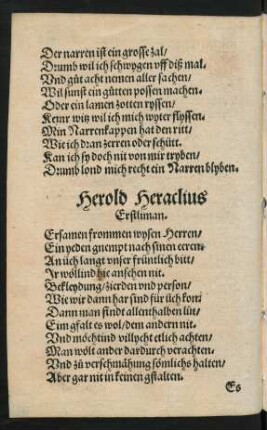 Der narren ist ein grosse zal/
Drumb wil ich schwygen vff diß mal.
Vnd gůt acht nemen aller sachen/
Wil sunst ein gůtten possen machen.
Oder ein lamen zotten ryssen/
Keinr witz wil ich mich wyter flyssen.
Min Narrenkappen hat den ritt/
Wie ich dran zerren oder schütt.
Kan ich sy doch nit von mir tryben/
Drumb lond mich recht ein Narren blyben.
Herold Heraclius
Erstliman.
Ersamen frommen wysen Herren/
Ein yeden gnempt nach sinen eeren.
An üch langt vnser früntlich bitt/
Ir wöllind hie ansehen nit.
Bekleydung/ zierden vnd person/
Wie wir dann har sind für üch kon.
Dann man findt allenthalben lüt/
Eim gfalt es wol/ dem andern nit.
Vnd möchtind villycht etlich achten/
Man wölt ander dardurch verachten.
Vnd zů verschmähung sömlichs halten/
Aber gar nis in keinen gstalten.
Es